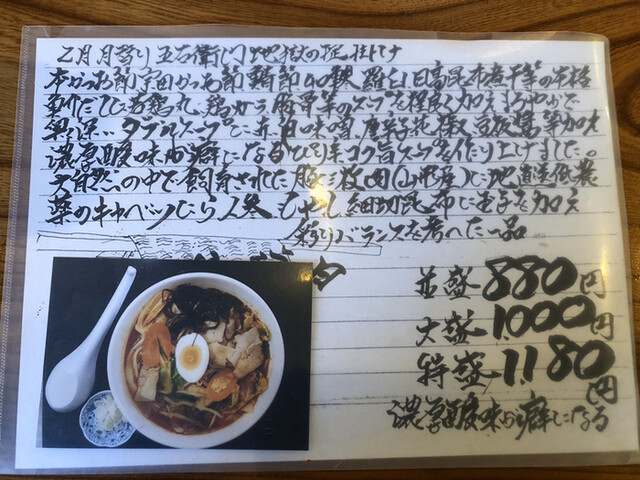 乙月 月替り 五右衛門 地獄の掟
本かつお節 宗田かつお節 鯖節 日高昆布煮干等の本格
だしに若鶏丸、鶏がら 豚骨等のスープを程良く加えまろやかで
奥深い ダブルスープに赤、白味噌、唐辛子 豆板醤等加え
濃厚酸味が癖になるぴり辛コク旨スープを作り上げました。
大自然の中で飼育された豚三枚肉(山形産)に地直送低農
薬のキャベツ にら 人参、もやし 細切昆布に玉子を加え
彩りバランスを考へた一品
並盛 880円
大盛 1.000円
特盛 1.180円
濃厚酸味が癖になる